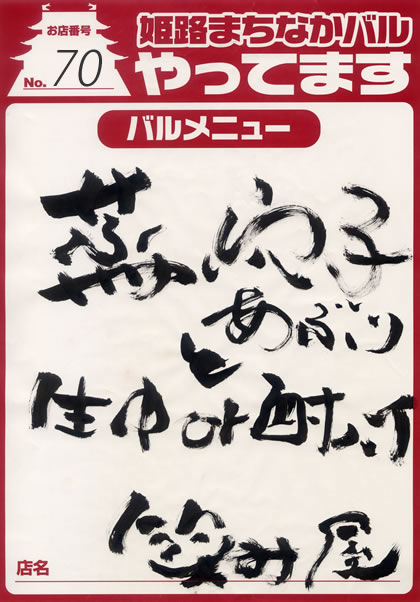 お店番号
No. 70
姫路まちなかバル
やってます
バルメニュー
蒸し穴子
あぶり
と
生中or酎ハイ
笑み屋
店名